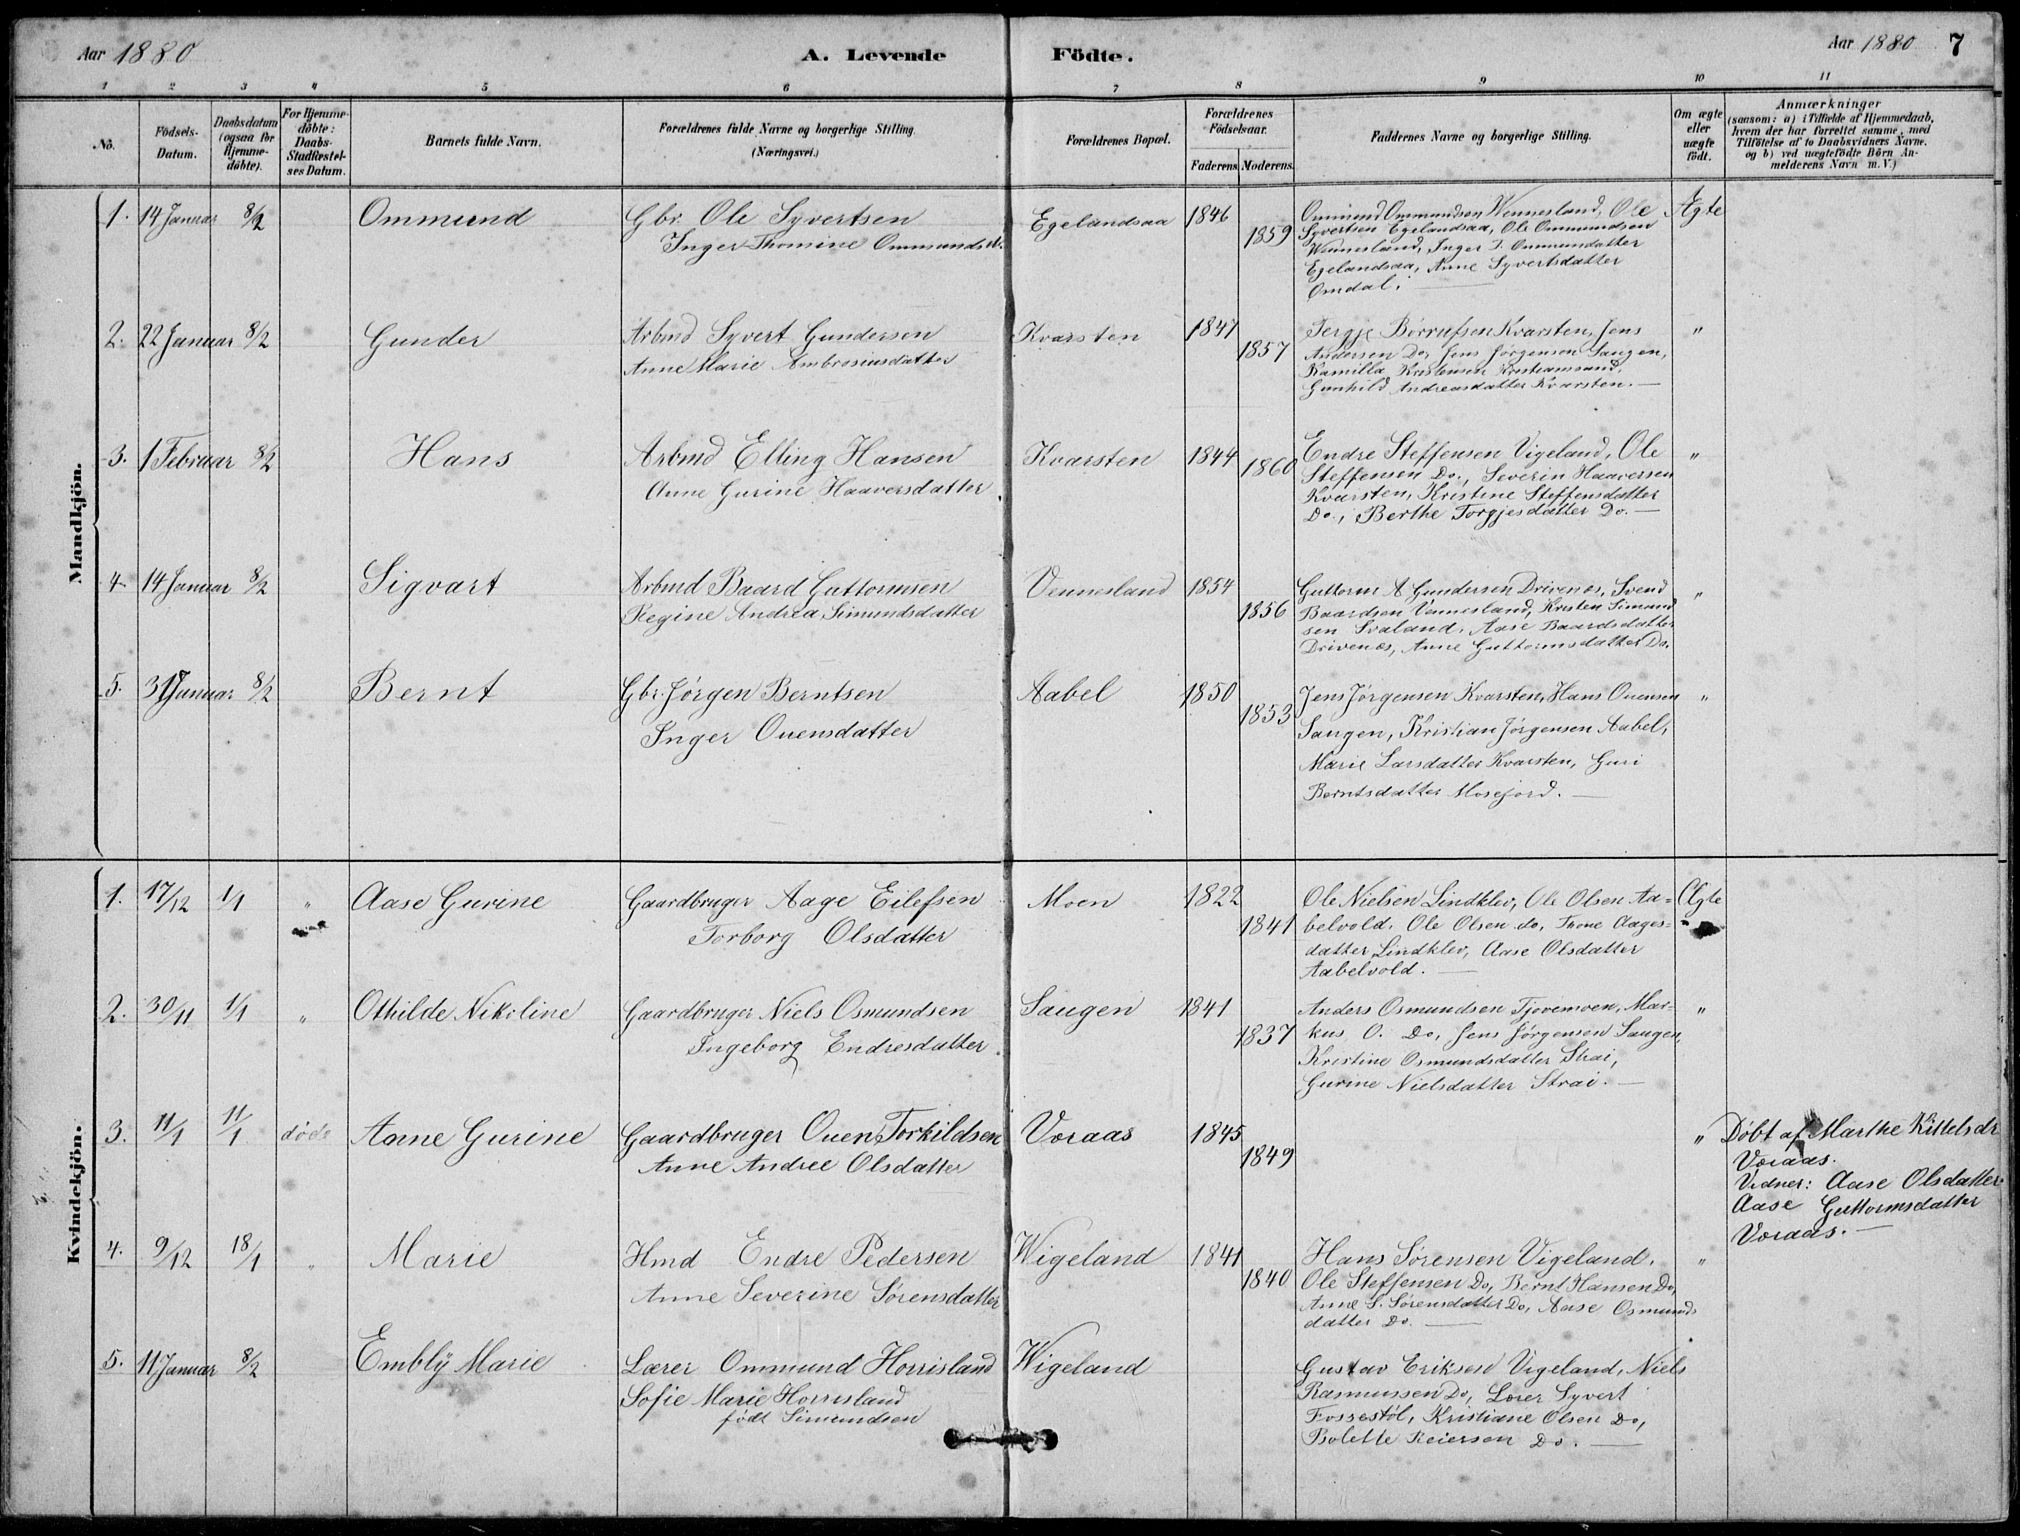 Aar 1880
A. Levende Födte.
Aar 1880 7
1 2 3 4 5 6 7 8 9 10 11
No.
Födsels-
Datum.
Daabsdatum
(ogsaa for
Hjemme-
döbte).
For Hjemme-
döbte:
Daabs-
Stadfæstel-
ses Datum.
Barnets fulde Navn.
Forældrenes fulde Navne og borgerlige Stilling
(Næringsvei.)
Forældrenes Bopæl.
Forældrenes
Födselsaar.
Faderens Moderens
Faddernes Navne og borgerlige Stilling.
Om ægte
eller
uægte
födt.
Anmærkninger
(saasom: a) i Tilfælde af Hjemmedaab,
hvem der har forrettet samme, med
Tilföielse af to Daabsvidners Navne.
og b) ved uægtefödte Börn An-
melderens Navn m. V.)
Mandkjön.
1. 14 Januar 8/2 Ommund
Gbr. Ole Syvertsen
Inger Thomine Ommundsd.
Egelandsaa 1846 1859
Ommund Ommundsen Wennesland, Ole
Syvertsen Egelandsaa, Ole Ommundsen
Wennesland, Inger T. Ommundatter
Egelandsaa, Anne Syvertsdatter
Omdal.
Ægte
2. 22 Januar 8/2 Gunder
Arbmd Syvert Gundersen
Anne Marie Ambrosiusdatter
Kvarsten 1847 1857
Tergje Børrufsen Kvarsten, Jens
Andersen Do, Jens Jørgensen Saugen,
Kamilla Kristensen Kristiansand,
Gunhild Andreasdatter Kvarsten. —
"
3. 1 Februar 8/2 Hans
Arbmd Elling Hansen
Anne Gurine Haaversdatter
Kvarsten 1844 1860
Endre Steffensen Vigeland, Ole
Steffensen Do., Severin Haaversen
Kvarsten, Kristine Steffensdatter
Do., Berthe Torgjesdatter Do. —
"
4. 14 Januar 8/2 Sigvart
Arbmd Baard Guttormsen
Regine Andrea Simundsdatter
Vennesland 1854 1856
Guttorm A Gundersen Drivenes, Svend
Baardsen Vennesland, Kristen Simund
sen Svaland, Aase Baardsdatter
Drivenes, Anne Guttormsdatter Do.
"
5. 31 Januar 8/2 Bernt
Gbr. Jørgen Berntsen
Inger Ouensdatter
Aabel 1850 1853
Jens Jørgensen Kvarsten, Hans Ouensen
Saugen, Kristian Jørgensen Aabel,
Marie Larsdatter Kvarsten, Guri
Berntsdatter Mosejord. —
"
Kvindekjön.
1. 17/12 1/1 " Aase Gurine
Gaardbruger Aage Eilefsen
Torborg Olsdatter
Moen 1822 1841
Ole Nielsen Lindklev, Ole Olsen Aa-
belvold, Ole Olsen do, Tone Aages-
datter Lindklev, Aase Olsdatter
Aabelvold. —
Ægte
2. 30/11 1/1 " Othilde Nikoline
Gaardbruger Niels Osmundsen
Ingeborg Endresdatter
Saugen 1841 1837
Anders Osmundsen Tjovemoen, Mar-
kus O. Do, Jens Jørgensen Saugen,
Kristine Osmundsdatter Strai,
Gurine Nielsdatter Strai. —
"
3. 11/1 11/1 døde Anne Gurine
Gaardbruger Ouen Torkildsen
Anne Andree Olsdatter
Voraas 1845 1849
" Døbt af Marthe Kittelsdr
Voraas.
Vidner: Aase Olsdatter
Aase Guttormsdatter
Voraas. —
4. 9/12 18/1 " Marie
Hmd Endre Pedersen
Anne Severine Sørensdatter
Wigeland 1841 1840
Hans Sørensen Vigeland,
Ole Steffensen Do, Bernt Hansen Do,
Anne S. Sørensdatter Do, Aase Osmunds
datter Do. —
"
5. 11 Januar 8/2 Emblÿ Marie
Lærer Ommund Horrisland
Sofie Marie Horrisland
født Simundsen
Wigeland
Gustav Eriksen Vigeland, Niels
Rasmussen Do, Lærer Syvert
Fossestøl, Kristiane Olsen Do,
Bolette Reiersen Do. —